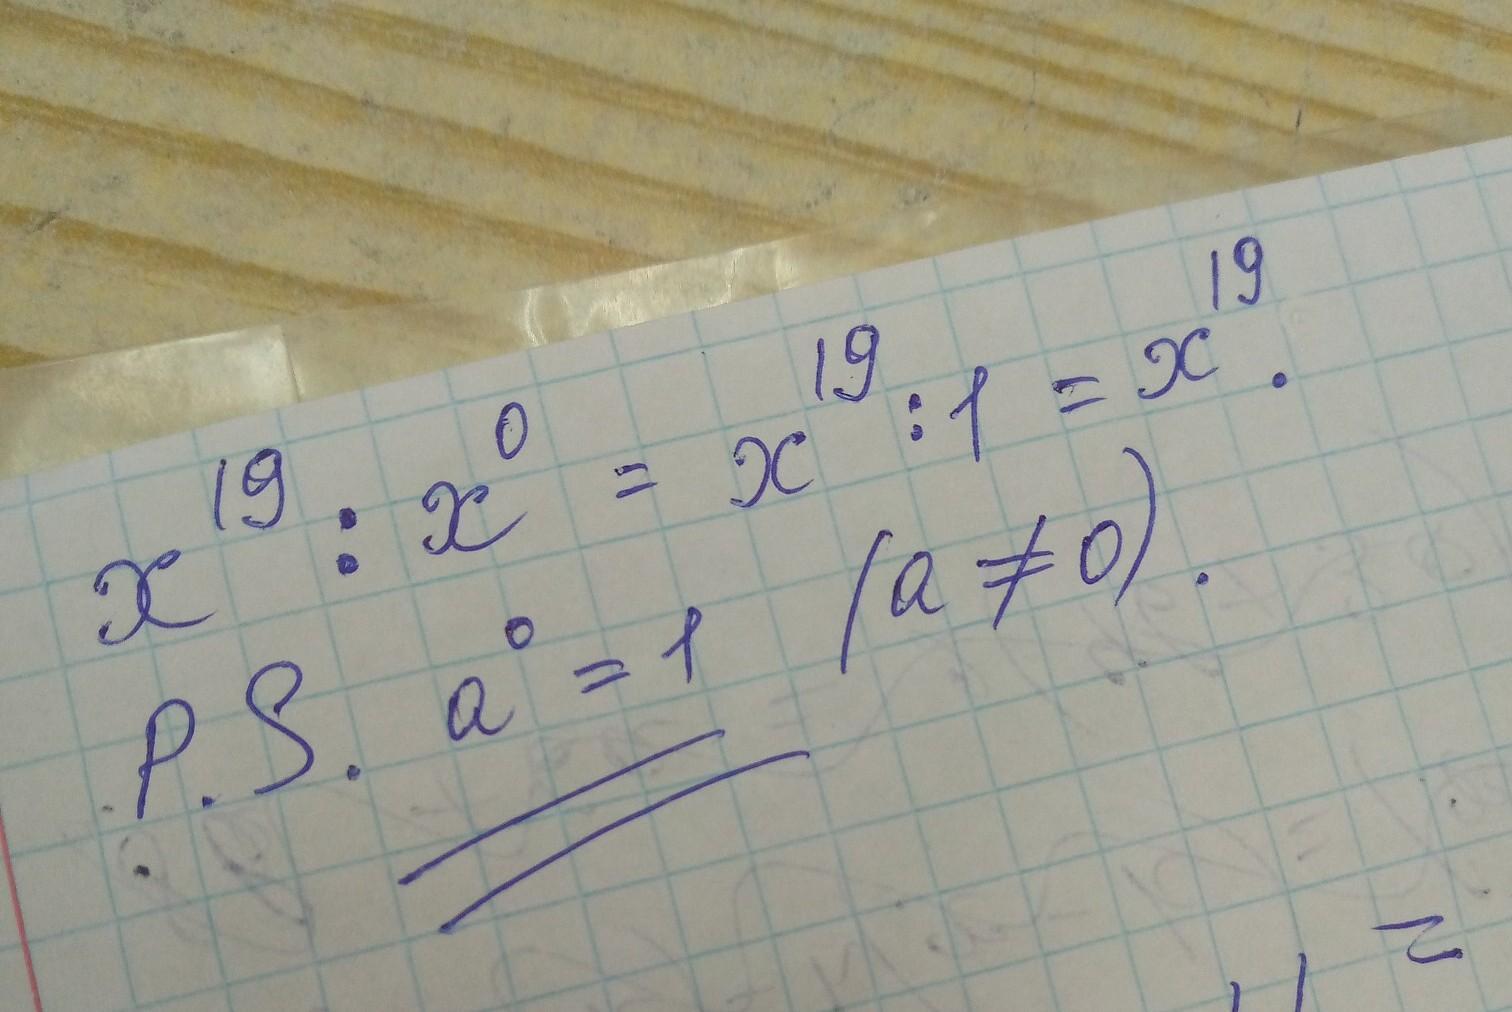 x¹⁹ : x⁰ = x¹⁹ : 1 = x¹⁹.
P.S. a⁰ = 1 (a ≠ 0).